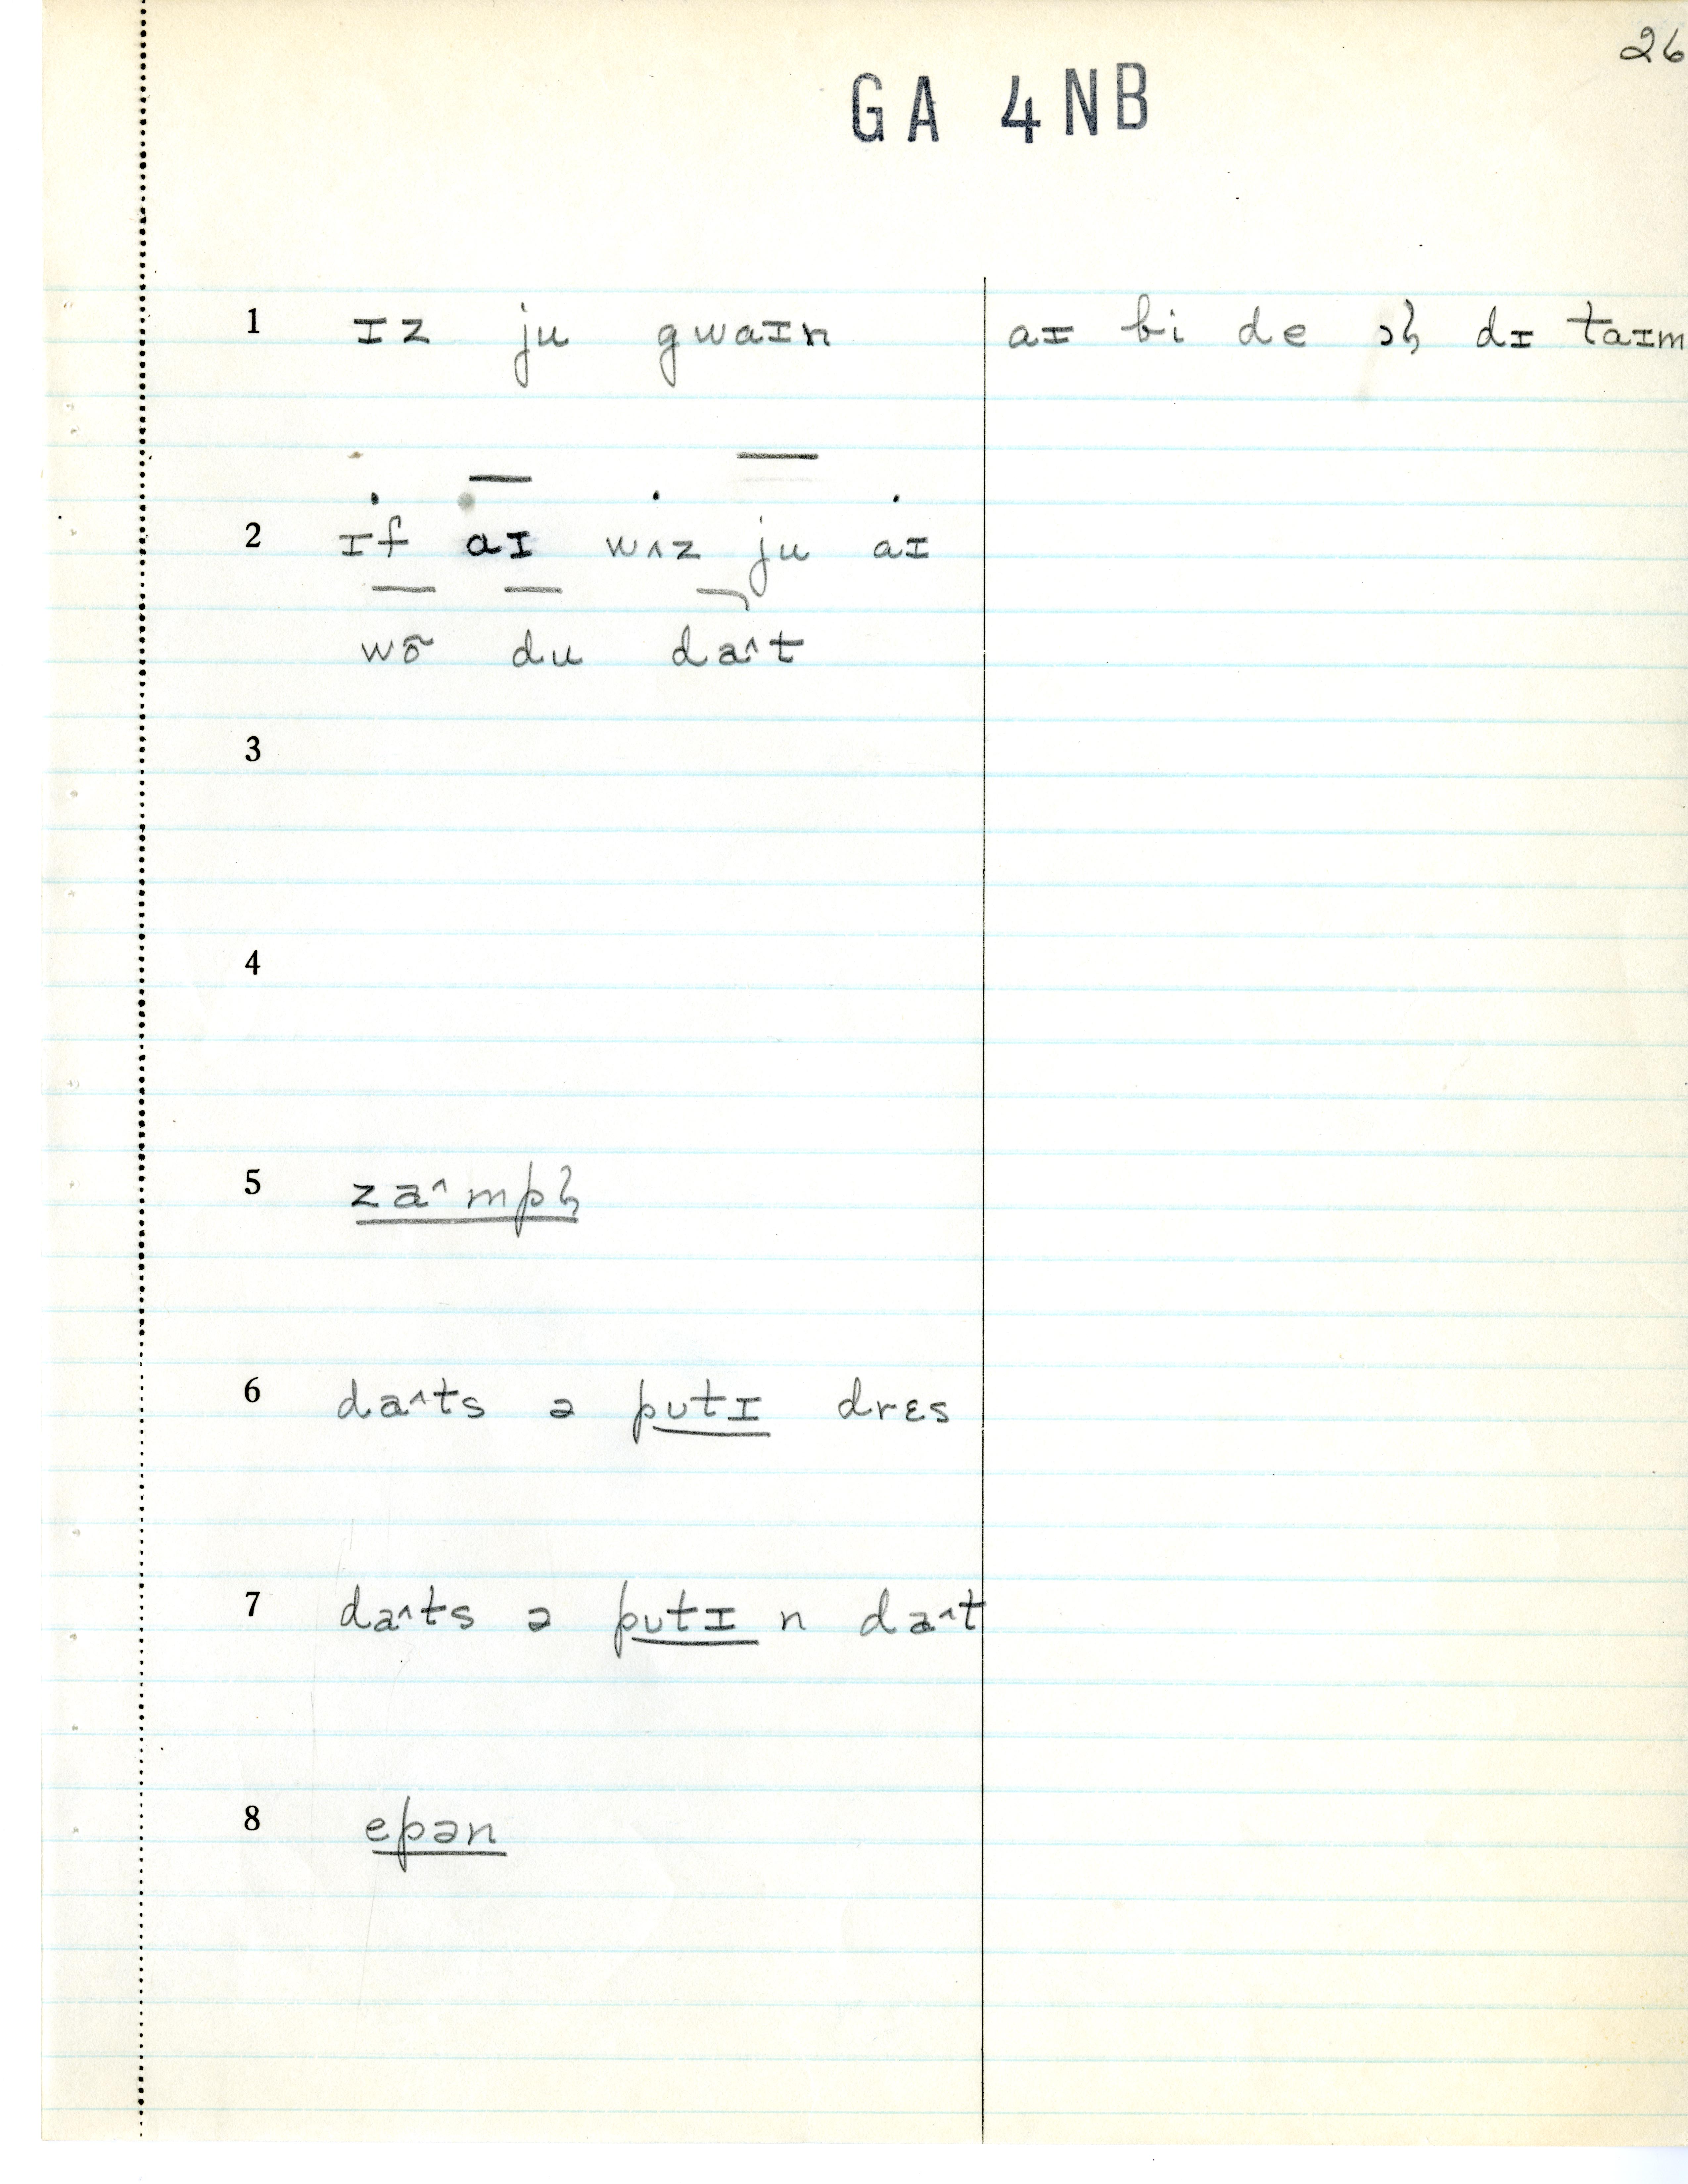 26
GA 4NB
1 ɪz ju gwaɪn aɪ bi de ɔɫ dɪ taɪm
2 ɪf aɪ wʌz ju aɪ
wõ du da^t
3
4
5 za^mpɫ
6 da^ts ə pʊtɪ drɛs
7 da^ts ə pʊtɪ n da^t
8 epən